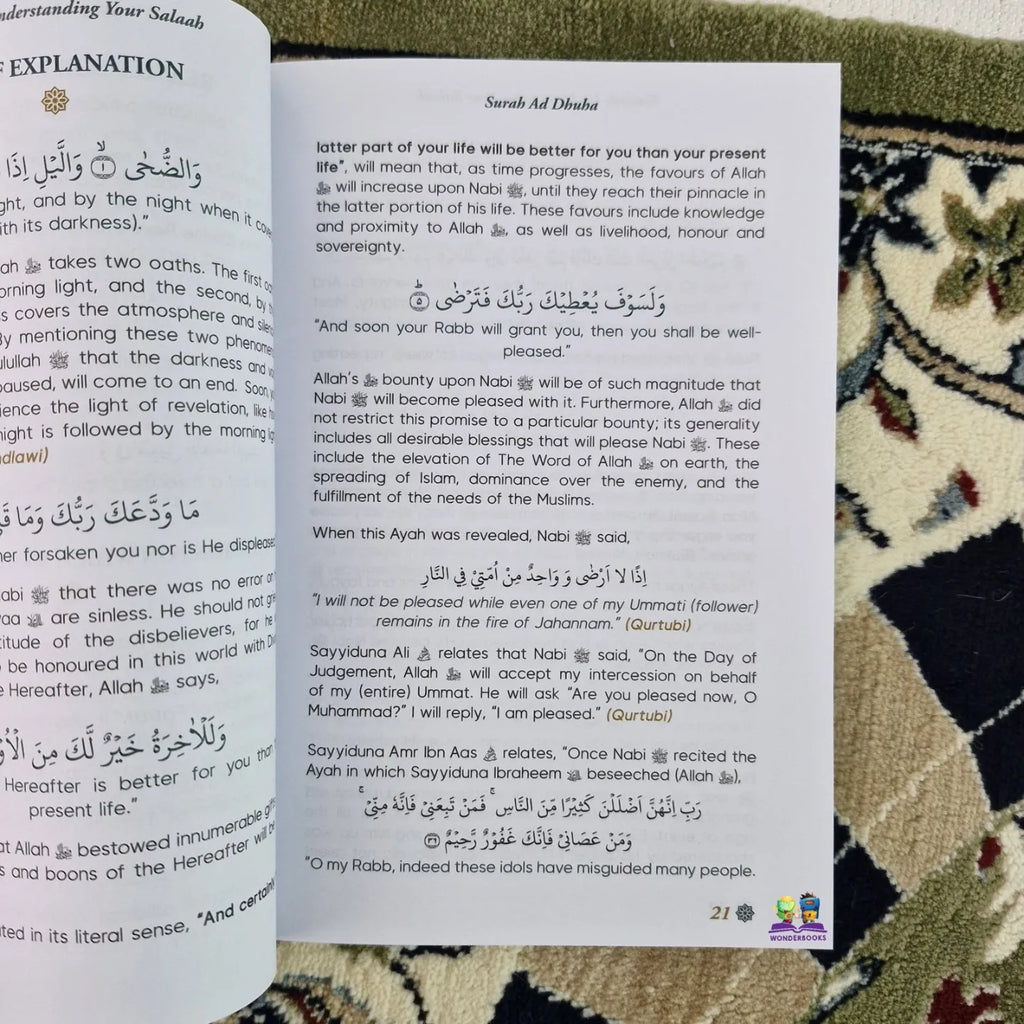 Understanding Your Salaah
EXPLANATION
وَالضُّحٰى ۙ ۝١ وَالَّيْلِ اِذَا
and by the night when it
with its darkness)."
takes two oaths. The first
morning light, and the second, by
covers the atmosphere and
By mentioning these two
ﷺ that the darkness and
paused, will come to an end. Soon
the light of revelation, like
night is followed by the morning
مَا وَدَّعَكَ رَبُّكَ وَمَا
forsaken you nor is He
Nabi ﷺ that there was no error on
are sinless. He should not
of the disbelievers, for he
be honoured in this world with
Hereafter, Allah ﷻ says,
وَلَلْاٰخِرَةُ خَيْرٌ لَّكَ مِنَ
Hereafter is better for you than
present life."
Allah ﷻ bestowed innumerable
and boons of the Hereafter will be
in its literal sense, "And certainly
Surah Ad Dhuha
latter part of your life will be better for you than your present
life", will mean that, as time progresses, the favours of Allah
ﷻ will increase upon Nabi ﷺ, until they reach their pinnacle in
the latter portion of his life. These favours include knowledge
and proximity to Allah ﷻ, as well as livelihood, honour and
sovereignty.
وَلَسَوْفَ يُعْطِيْكَ رَبُّكَ فَتَرْضٰى ؕ ۝٥
"And soon your Rabb will grant you, then you shall be well-
pleased."
Allah's ﷻ bounty upon Nabi ﷺ will be of such magnitude that
Nabi ﷺ will become pleased with it. Furthermore, Allah ﷻ did
not restrict this promise to a particular bounty; its generality
includes all desirable blessings that will please Nabi ﷺ. These
include the elevation of The Word of Allah ﷻ on earth, the
spreading of Islam, dominance over the enemy, and the
fulfillment of the needs of the Muslims.
When this Ayah was revealed, Nabi ﷺ said,
اِذًا لَا اَرْضٰى وَ وَاحِدٌ مِنْ اُمَّتِيْ فِي النَّارِ
"I will not be pleased while even one of my Ummati (follower)
remains in the fire of Jahannam." (Qurtubi)
Sayyiduna Ali relates that Nabi ﷺ said, "On the Day of
Judgement, Allah ﷻ will accept my intercession on behalf
of my (entire) Ummat. He will ask "Are you pleased now, O
Muhammad?" I will reply, "I am pleased." (Qurtubi)
Sayyiduna Amr Ibn Aas relates, "Once Nabi ﷺ recited the
Ayah in which Sayyiduna Ibraheem beseeched (Allah ﷻ),
رَبِّ اِنَّهُنَّ اَضْلَلْنَ كَثِيْرًا مِّنَ النَّاسِ ۚ فَمَنْ تَبِعَنِيْ فَاِنَّهٗ مِنِّيْ ۚ
وَمَنْ عَصَانِيْ فَاِنَّكَ غَفُوْرٌ رَّحِيْمٌ ۝٣٦
"O my Rabb, indeed these idols have misguided many people.
21
WONDERBOOKS